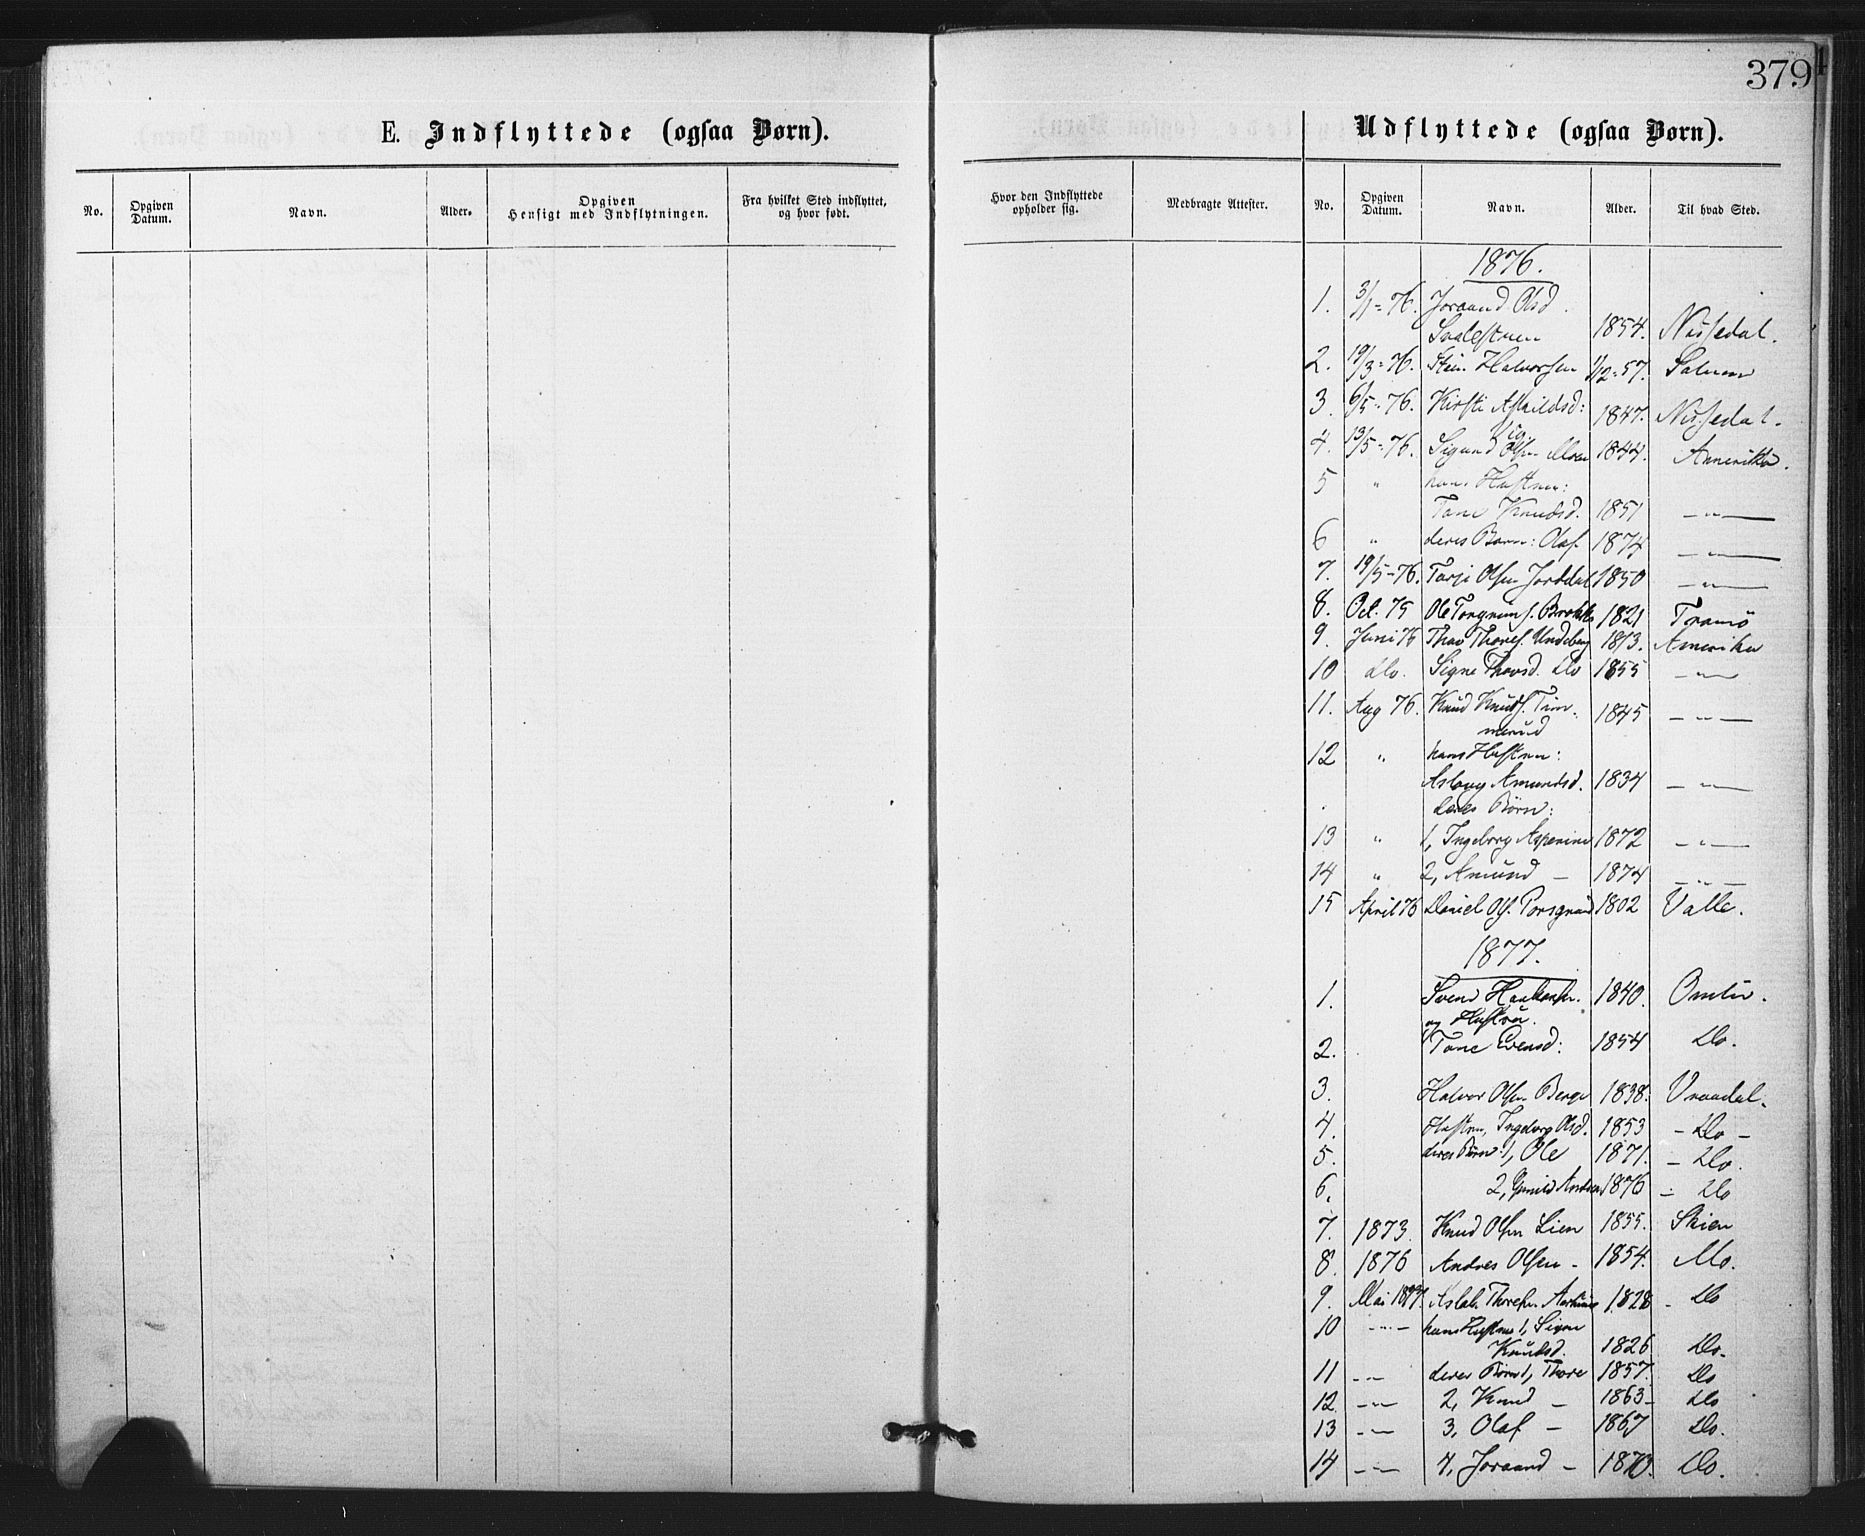 379
E. Indflyttede (ogsaa Børn).
Udflyttede (ogsaa Børn).
No. Opgiven Datum. Navn. Alder. Opgiven Hensigt med Indflytningen. Fra hvilket Sted indflyttet, og hvor født. Hvor den Indflyttede opholder sig. Medbragte Attester. No. Opgiven Datum. Navn. Alder. Til hvad Sted.
1876.
1. 3/1=76. Joraand Olsd.
1854. Nissedal.
2. 19/3=76. Stein Halvorsen 1/12=57.
3. 6/5=76. Kirsti Aslaildsd: 1847. Nissedal.
4. 13/5=76. Sigurd Olsen Moen 1844. Amerika.
5 " hans Hustru:
Tone Knudsd. 1851 — " —
6 " deres Barn: Olaf 1874 — " —
7. 19/5-76. Tarje Olsen Jordal 1850 — " —
8. Oct. 75 Ole Torgrims. 1821 Tromö
9. Juni 76 Thov Thores. Undeberg 1813. Amerika
10 do. Signe Thovsd. do 1855 — " —
11. Aug 76. Knud Knuds. Tim-
merud 1845 — " —
12 " hans Hustru:
Aslaug Amundsd. 1834 — " —
deres Börn:
13 " 1, Ingeborg Asperine 1872 — " —
14 " 2, Amund — 1874 — " —
15 April 76 Daniel Ols. Porsgrund 1802 Valle.
1877.
1. Svend Haakensen. 1840. Omlie.
og Hustru.
2. Tone Evensd: 1854 Do.
3. Halvor Olsen Berge 1838. Vraadal.
4. Hustru, Ingeborg Olsd. 1853 - Do -
5. deres Börn: 1, Ole 1871. - Do.
6. 2, Gunild 1876 - Do
7. 1873. Knud Olsen Lien 1855. Skien
8. 1876 Andres Olsen - 1854. Mo.
9. Mai 1877. Aslak Thoresen 1828 - Do
10 — " — hans Hustru 1, Signe
Knudsd. 1826 Do.
11 — " — deres Börn 1, Thore 1857. Do
12. — " — 2, Knud — 1863 - Do
13 — " — 3, Olaf — 1867 Do.
14 — " — 4, Joraand — 1870. Do.